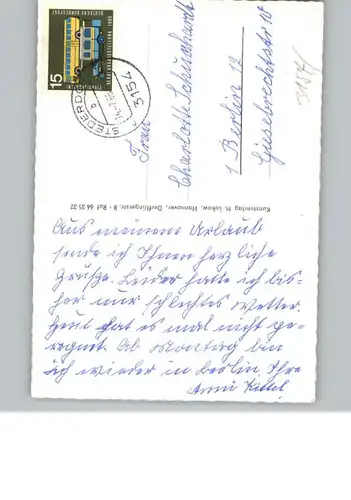 15
DEUTSCHE BUNDESPOST
STEDERDORF
3154
b
Frau
Charlotte Schuchardt
1 Berlin 12
Giesebrechtstr 10
3154
Kunstverlag H. Lukow, Hannover, Dorfflingerstr. 8 - Ruf 66 35 32
Aus meinem Urlaub
sende ich Ihnen herzliche
Grüße. Leider hatte ich bis-
her nur schlechtes Wetter.
Heut hat es mal nicht ge-
regnet. Ab Montag bin
ich wieder in Berlin. Ihre
Anni